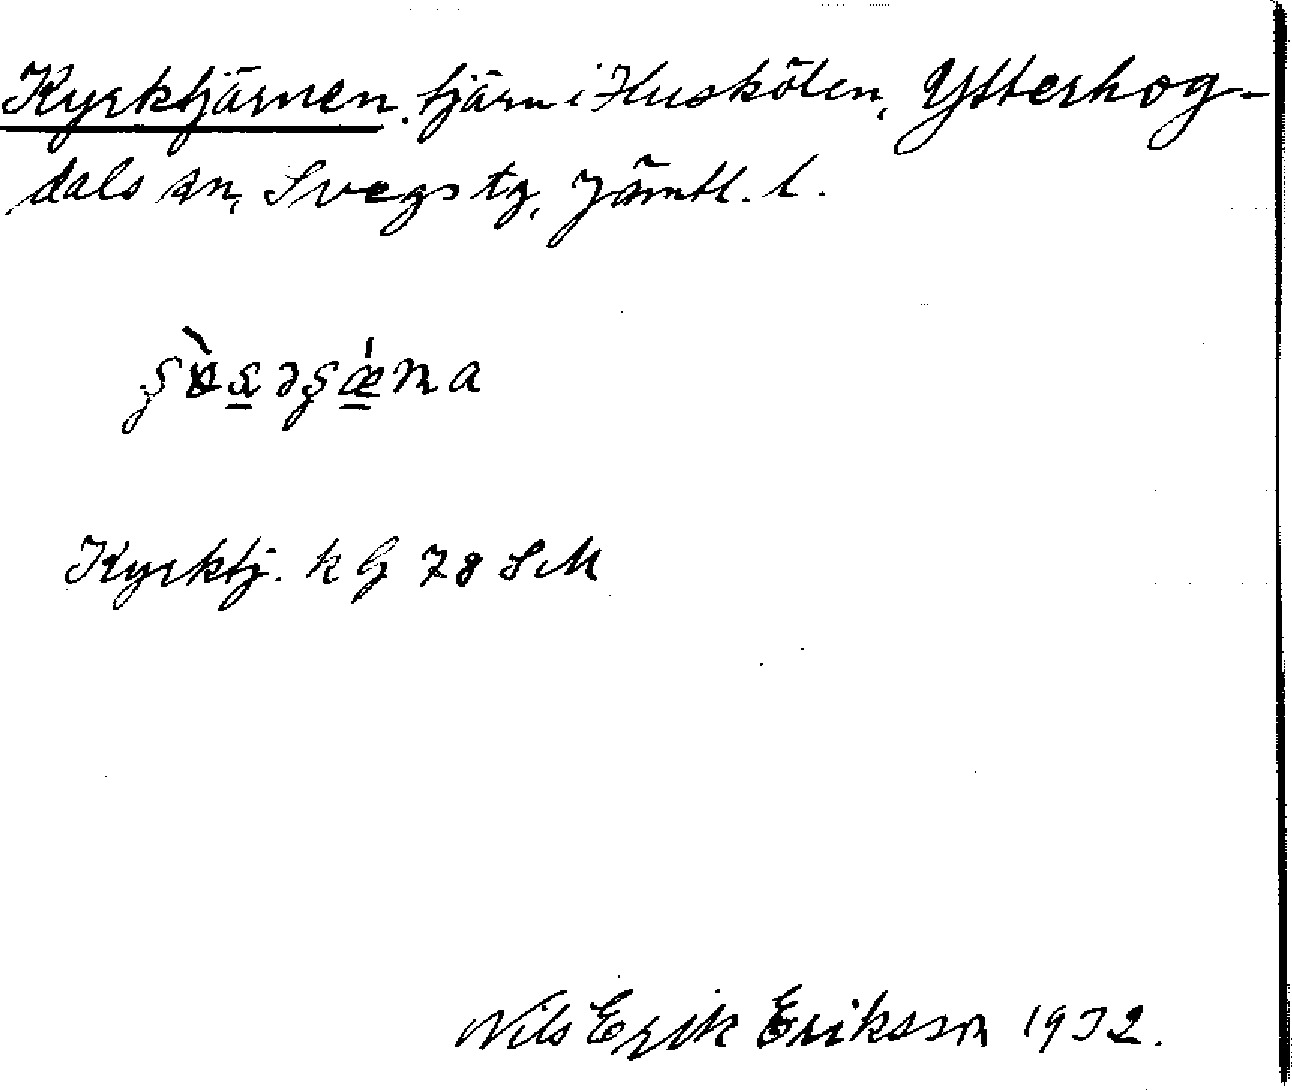 Kyrktjärnen, tjärn i Huskölen, Ytterhog-
dals sn, Svegs tg, Jämtl. l.
Kyrktj. k G 78 SM
Nils Erik Eriksson 1932.